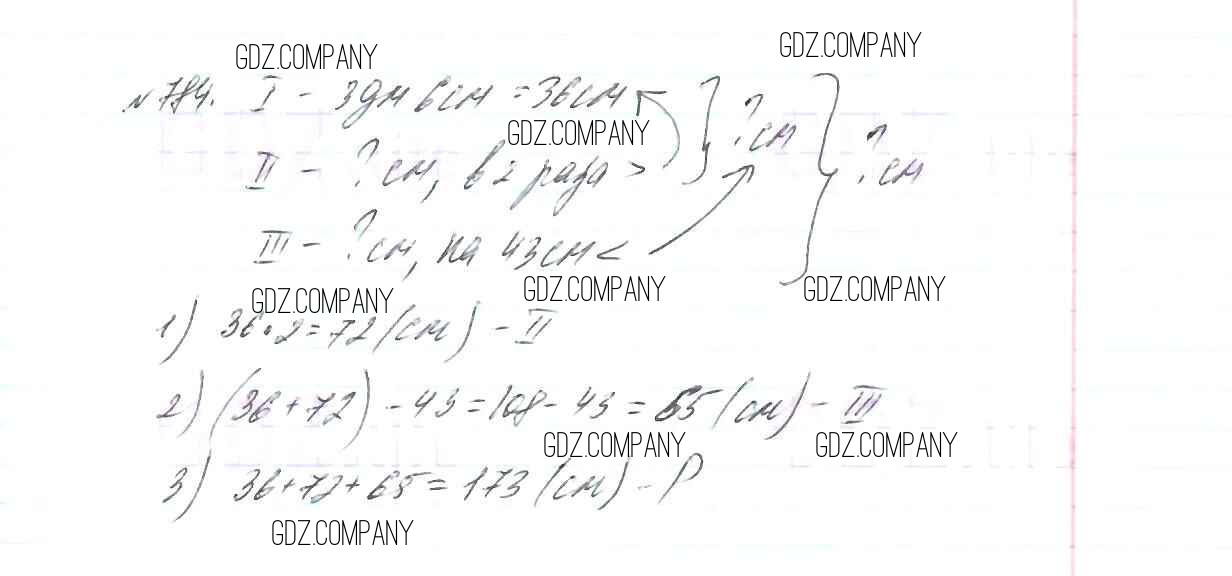 GDZ.COMPANY GDZ.COMPANY
№784. I - 3дм 6см = 36см
GDZ.COMPANY
II - ? см, в 2 раза > } ? см } ? см
III - ? см, на 43см <
GDZ.COMPANY GDZ.COMPANY GDZ.COMPANY
1) 36·2=72(см) - II
2) (36+72) - 43 = 108 - 43 = 65 (см) - III
GDZ.COMPANY GDZ.COMPANY
3) 36+72+65 = 173 (см) - P
GDZ.COMPANY